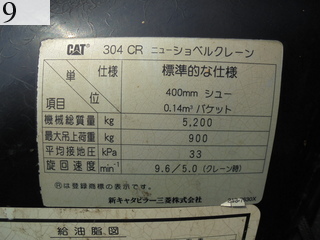 9
CAT 304 CR ニューショベルクレーン
仕様 標準的な仕様
単位 400mm シュー
項目 0.14m³ バケット
機械総質量 kg 5,200
最大吊上荷重 kg 900
平均接地圧 kPa 33
旋回速度 min⁻¹ 9.6/5.0 (クレーン時)
Ⓡは登録商標の表示です。
新キャタピラー三菱株式会社
給油脂図